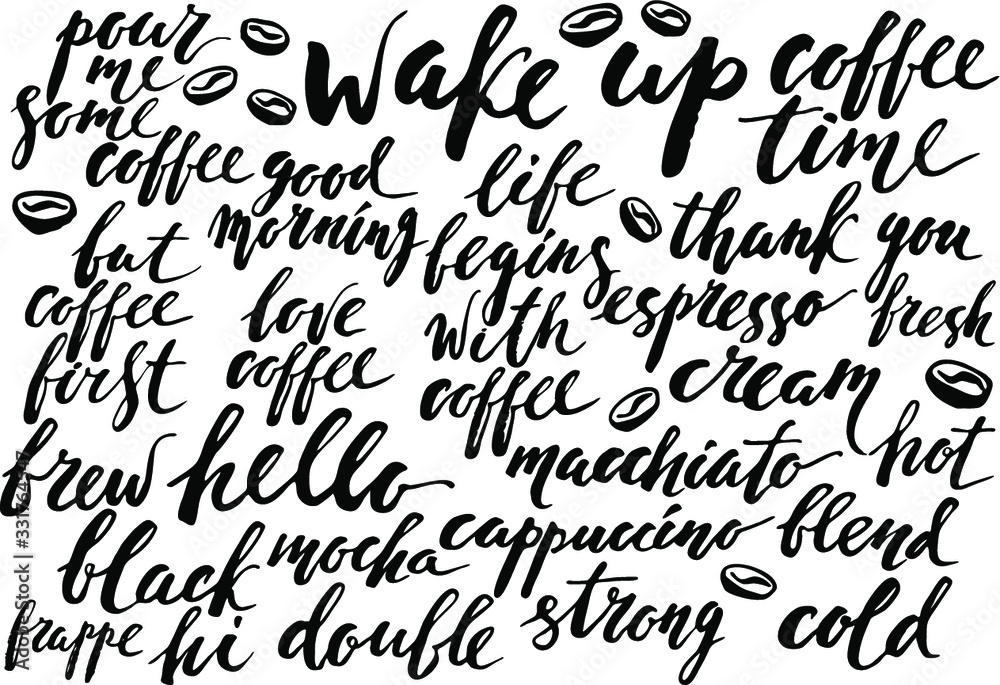 pour
me
some
coffee
wake up
coffee
time
good
morning
life
begins
with
coffee
thank you
but
coffee
first
love
coffee
espresso
fresh
cream
hot
brew
hello
macchiato
black
mocha
cappuccino
blend
frappe
hi
double
strong
cold
Adobe Stock | #331764547